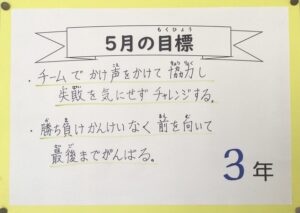 5月の目標
・チームでかけ声をかけて協力し
失敗を気にせずチャレンジする。
・勝ち負けかんけいなく前を向いて
最後までがんばる。
3年